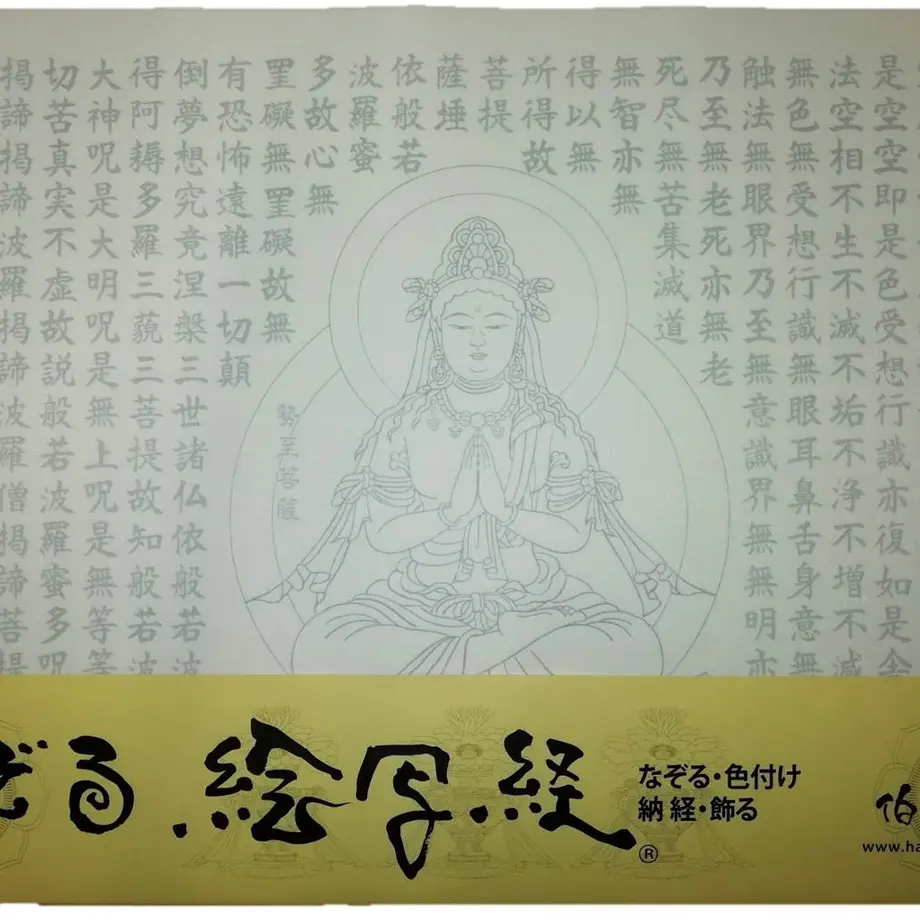 是空空即是色受想行識亦復如是舍
法空相不生不滅不垢不浄不増不減
無色無受想行識無眼耳鼻舌身意無
触法無眼界乃至無意識界無無明亦
乃至無老死亦無老
死尽無苦集滅道
無智亦無
得以無
所得故
菩提
薩埵
依般若
波羅蜜
多故心無
罣礙無罣礙故無
有恐怖遠離一切顛
倒夢想究竟涅槃三世諸仏依般若波
得阿耨多羅三藐三菩提故知般若波
大神呪是大明呪是無上呪是無等等
切苦真実不虚故説般若波羅蜜多呪
揭諦揭諦波羅揭諦波羅僧揭諦菩提
勢至菩薩
ぞる 絵写経®
なぞる・色付け
納経・飾る
伯
www.ha